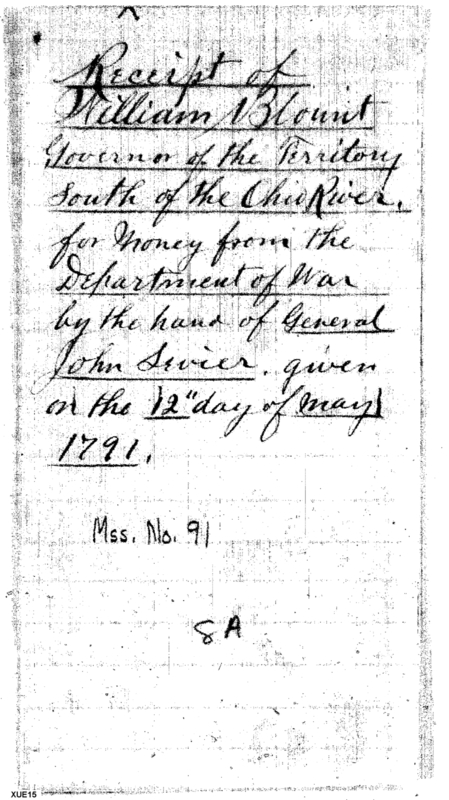 Receipt of
William Blount
Governor of the Territory
South of the Ohio River.
for Money from the
Department of War
by the hand of General
John Sevier. given
on the 12" day of May
1791.
Mss. No. 91
8A
XUE15